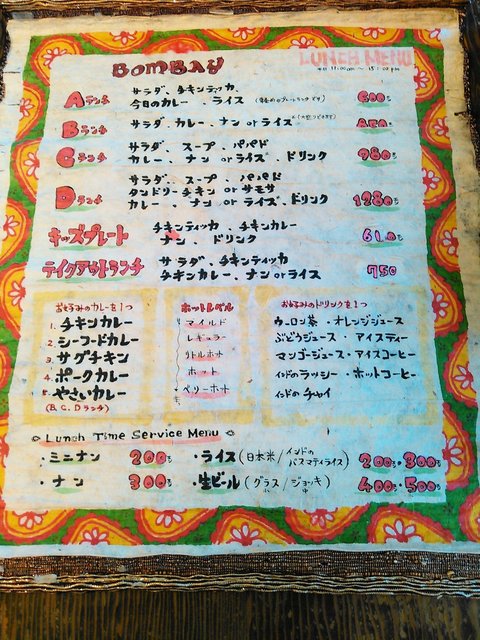 BOMBAY
LUNCH MENU
Aランチ サラダ、チキンティッカ、
今日のカレー、ライス 600
Bランチ サラダ、カレー、ナン orライス 850
Cランチ サラダ、スープ、パパド
カレー、ナン orライス、ドリンク 980
Dランチ サラダ、スープ、パパド
タンドリーチキン orサモサ
カレー、ナン orライス、ドリンク 1280
キッズプレート チキンティッカ、チキンカレー
ナン、ドリンク 610
テイクアウトランチ サラダ、チキンティッカ
チキンカレー、ナンorライス 750
お好みのカレーを1つ
1. チキンカレー
2. シーフードカレー
3. サグチキン
4. ポークカレー
5. やさいカレー
(B.C.Dランチ)
ホットレベル
マイルド
レギュラー
リトルホット
ホット
ベリーホット
お好みのドリンクを1つ
ウーロン茶・オレンジジュース
ぶどうジュース・アイスティー
マンゴージュース・アイスコーヒー
インドのラッシー・ホットコーヒー
インドのチャイ
Lunch Time Service Menu
・ミニナン 200 ・ライス(日本米/インドのバスマティライス) 200・300
・ナン 300 ・生ビール(グラス/ジョッキ) 400・500